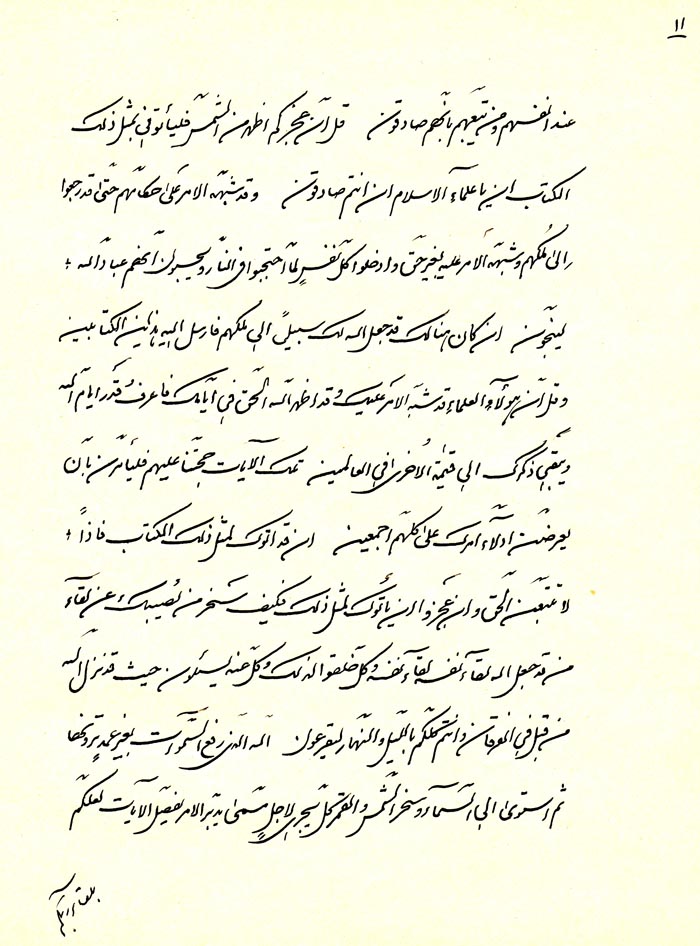 ١١
عند انفسهم و من يتبعهم بانهم صادقون قل ان عجزكم اظهر من الشمس فلياتوني بمثل ذلك
الكتاب ان يا علماء الاسلام ان انتم صادقون و قد شبه الامر على حكامهم حتى قد رجعوا
الى ملكهم و شبه الامر عليه بغير حق و ادخلوا كل نفس لما احتجبوا في النار و يحسبون انهم عباد الله
لينجون ان كان هنالك قد جعل الله لك سبيلا الى ملكهم فارسل اليه هذين الكتابين
و قل ان هؤلاء العلماء قد شبه الامر عليك و قد اظهر الله الحق في ايامك فاعرف قدر ايام الله
و يبقى ذكرك الى قيمة الاخرى في العالمين تلك الايات حجتنا عليهم فليامرن بان
يعرضن ادلاء امرك على كلهم اجمعين ان قد اتوك بمثل ذلك الكتاب فاذا
لا تتبعن الحق و ان عجزوا ان ياتوك بمثل ذلك فكيف تسخر من نصيبك عن لقاء
من قد جعل الله لقاء نفسه لقاء نفسه و كل خلقوا لذلك و كل عنه يسئلون حيث قد نزل الله
من قبل في الفرقان و انتم كلكم بالليل و النهار لتقرءون الله الذي رفع السموات بغير عمد ترونها
ثم استوى الى السماء و سخر الشمس و القمر كل يجري لاجل مسمى يدبر الامر يفصل الايات لعلكم
بلقاء ربكم